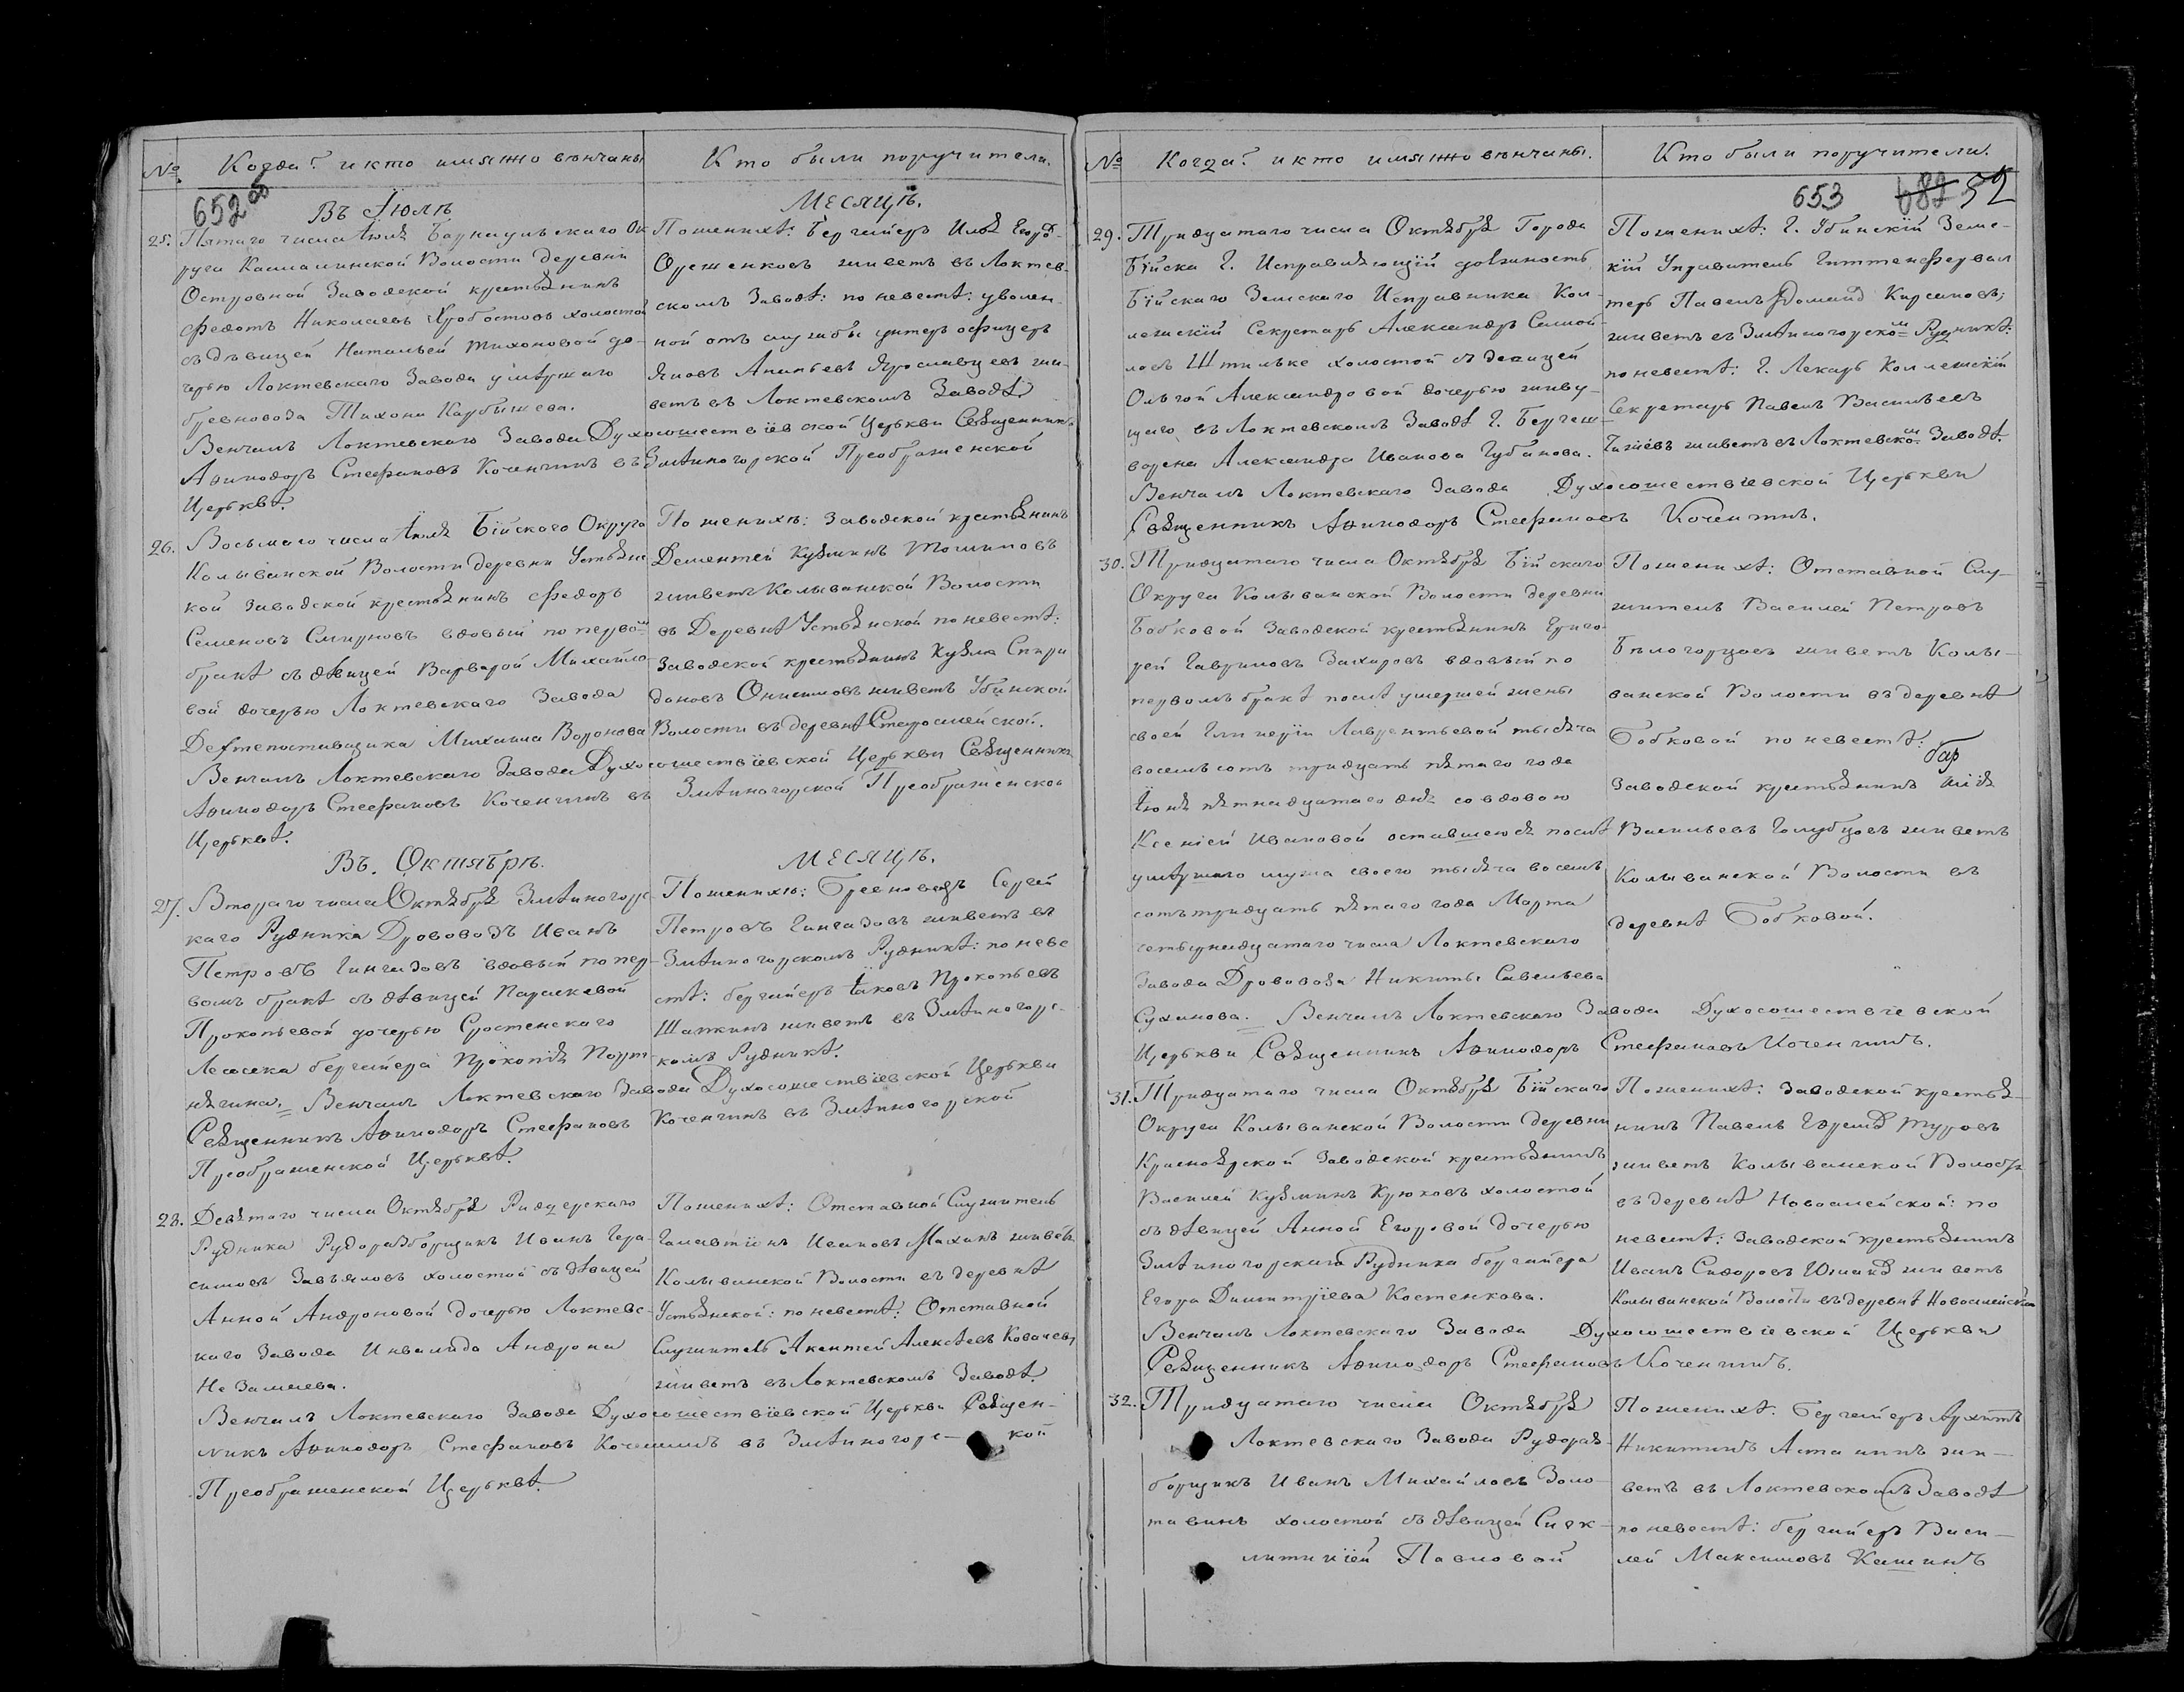 № Когда? и кто имянно венчаны
Кто были поручители.
652 об
Въ Іюлѣ
Месяцѣ.
25. Пятаго числа Іюля Барнаульскаго Ок
руга Касмалинской Волости деревни
Островной Заводской крестьянинъ
Федотъ Николаевъ Хробостовъ холостой
съ дѣвицей Натальей Тихоновой до-
черью Локтевскаго Завода умѣршаго
бревновоза Тихона Карбышева.
Венчалъ Локтевскаго Завода Духосошествіевской Церькви Священникъ
Афинодоръ Стефановъ Коченгинъ въ Змѣиногорской Преображенской
Церьквѣ.
По женихѣ: Бергайеръ Илья Егоровъ
Ореженковъ живетъ въ Локтев-
скомъ Заводѣ: по невестѣ: уволен-
ной отъ службы унтеръ офицеръ
Яковъ Ананьевъ Ярославцевъ жи-
ветъ въ Локтевскомъ Заводѣ
26. Восьмаго числа Іюля Бійскаго Округа
Колыванской Волости деревни Устьянс
кой Заводской крестьянинъ Федоръ
Семеновъ Смирновъ вдовый по первом
бракѣ съ дѣвицей Варварой Михайло-
вой дочерью Локтевскаго Завода
Дегтепоставщика Михаила Воронова
Венчалъ Локтевскаго Завода Духосошествіевской Церькви Священникъ
Афинодоръ Стефановъ Коченгинъ въ Змѣиногорской Преображенской
Церьквѣ.
По женихѣ: Заводской крестьянинъ
Дементей Кузминъ Томиловъ
живетъ Колыванской Волости
въ Деревнѣ Устьянской по невестѣ:
Заводской крестьянинъ Кузма Спири
доновъ Онисимовъ живетъ Убинской
Волости въ деревнѣ Староалейской.
Въ. Октябрѣ.
Месяцѣ.
27. Втораго числа Октября Змѣиногорс
каго Рудника Дрововозъ Иванъ
Петровъ Гингазовъ вдовый по пер-
вомъ бракѣ съ дѣвицей Параскевой
Прокопьевой дочерью Сростенскаго
Лесосека бергайера Прокопія
Венчалъ Локтевскаго Завода Духосошествіевской Церькви
Священникъ Афинодоръ Стефановъ Коченгинъ въ Змѣиногорской
Преображенской Церьквѣ.
По женихѣ: Бревновозъ Сергей
Петровъ Гингазовъ живетъ въ
Змѣиногорскомъ Рудникѣ: по неве
стѣ: бергайеръ Іаковъ Прокопьевъ
Шапкинъ живетъ въ Змѣиногорс-
комъ Рудникѣ.
28. Девятаго числа Октября Ридерскаго
Рудника Рудоразборщикъ Иванъ Гера-
симовъ Завьяловъ холостой съ дѣвицей
Анной Андроновой дочерью Локтевс-
каго Завода Инвалида Андрона
Незамаева.
Венчалъ Локтевскаго Завода Духосошествіевской Церькви Священ-
никъ Афинодоръ Стефановъ Коченгинъ въ Змѣиногорс-кой
Преображенской Церьквѣ.
По женихѣ: Отставной Служитель
Галактіонъ Ивановъ Махинъ живетъ
Колыванской Волости въ деревнѣ
Устьянской: по невестѣ: Отставной
Служитель Акентей Алексѣевъ Ковалевъ
живетъ въ Локтевскомъ Заводѣ.
№ Когда? и кто имянно венчаны.
Кто были поручители.
653 682 52
29. Тридцатаго числа Октября Города
Бійска Г. Исправляющій должность
Бійскаго Земскаго Исправника Кол-
лежскій Секретарь Александръ Самой-
ловъ Штильке холостой съ девицей
Ольгой Александровой дочерью живу-
щаго въ Локтевскомъ Заводѣ Г. Бергеш-
ворена Александра Иванова Губанова.
Венчалъ Локтевскаго Завода Духосошествіевской Церькви
Священникъ Афинодоръ Стефановъ Коченгинъ.
По женихѣ: Г. Убинскій Земс-
кій Управитель Гиттенфервал
теръ Павелъ Кирсановъ;
живетъ въ Змѣиногорском Рудникѣ:
по невестѣ: Г. Лекарь Коллежскій
Секретарь Павелъ Васильевъ
живетъ въ Локтевском Заводѣ.
30. Тридцатаго числа Октября Бійскаго
Округа Колыванской Волости деревни
Бобковой Заводской крестьянинъ Григо-
рей Гавриловъ Захаровъ вдовый по
первомъ бракѣ послѣ умершей жены
своей Гликеріи Лаврентьевой тысяча
восемьсотъ тридцать пятаго года
Іюня пятнадцатаго дня со вдовою
Ксеніей Ивановой оставшеюся послѣ
умѣршаго мужа своего тысяча восемь
сотъ тридцать пятаго года Марта
четырнадцатаго числа Локтевскаго
Завода Дрововоза Никиты Савельева
Суханова. Венчалъ Локтевскаго Завода Духосошествіевской
Церькви Священникъ Афинодоръ Стефановъ Коченгинъ.
По женихѣ: Отставной Слу-
житель Василей Петровъ
Бѣлогорцовъ живетъ Колы-
ванской Волости въ деревнѣ
Бобковой по невестѣ:
Заводской крестьянинъ
Васильевъ Голубцовъ живетъ
Колыванской Волости въ
деревнѣ Бобковой.
31. Тридцатаго числа Октября Бійскаго
Округа Колыванской Волости деревни
Красноярской Заводской крестьянинъ
Василей Кузминъ Крюковъ холостой
съ дѣвицей Анной Егоровой дочерью
Змѣиногорскаго Рудника бергайера
Егора Димитріева Костенкова.
Венчалъ Локтевскаго Завода Духосошествіевской Церькви
Священникъ Афинодоръ Стефановъ Коченгинъ.
По женихѣ: Заводской крестья-
нинъ Павелъ Туровъ
живетъ Колыванской Волости
въ деревнѣ Новоалейской: по
невестѣ: Заводской крестьянинъ
Иванъ Сидоровъ живетъ
Колыванской Волости въ деревнѣ Новоалейской
32. Тридцатаго числа Октября
Локтевскаго Завода Рудораз-
борщикъ Иванъ Михайловъ Золо-
тавинъ холостой съ дѣвицей Сиек-
литикіей Павловой
По женихѣ: Бергайеръ
Никитинъ жи-
ветъ въ Локтевскомъ Заводѣ
по невестѣ: бергайеръ Васи-
лей Максимовъ Кашинъ